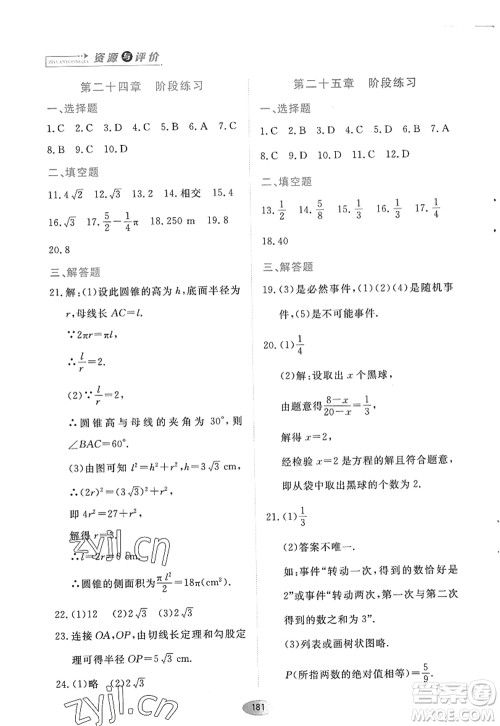 资源与评价
第二十四章 阶段练习
一、选择题
1.C 2.C 3.D 4.D 5.D 6.B 7.A
8.C 9.C 10.D
二、填空题
11.4√2 12.√3 13.√3 14.相交 15.4
16.√3 17.5/2−1/4π 18.250 m 19.8
20.8
三、解答题
21.解:(1)设此圆锥的高为h,底面半径为
r,母线长AC=l.
∵2πr=πl,
∴l/r=2.
(2)∵l/r=2,
∴圆锥高与母线的夹角为30°,则
∠BAC=60°.
(3)由图可知l²=h²+r²,h=3√3 cm,
∴(2r)²=(3√3)²+r²,
即4r²=27+r²,
解得r=3.
∴l=2r=6.
∴圆锥的侧面积为πl²/2=18π(cm²).
22.(1)12 (2)5√3
23.连接OA,OP,由切线长和勾股定
理可得OP=5√3 cm.
24.(1)略 (2)2√3
第二十五章 阶段练习
一、选择题
1.C 2.D 3.D 4.C 5.B 6.D 7.B
8.B 9.C 10.D 11.B 12.A
二、填空题
13.1/2 14.5/8 15.1/3 16.1/3 17.1/3
18.40
三、解答题
19.(3)是必然事件,(2)(4)是随机事
件,(1)(5)是不可能事件.
20.(1)1/4
(2)解:设取出x个黑球,
由题意得(8−x)/(20−x)=1/3,
解得x=2,
经检验x=2是方程的解且符合题意,
即从袋中取出黑球的个数为2.
21.(1)1/3
(2)答案不唯一.
如:事件“转动一次,得到的数恰好是
2”或事件“转动两次,第一次得到的数
与第二次得到的数和为3”.
(3)列表或画树状图略.
P(所得两数的绝对值相等)=5/9.
181
zyjl.cn
zyjl.cn